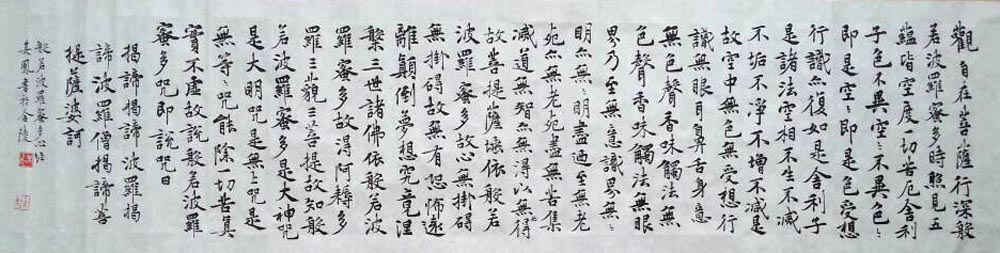 觀自在菩薩行深般
若波羅蜜多時照見五
蘊皆空度一切苦厄舍利
子色不異空〻不異色〻
即是空〻即是色受想
行識亦復如是舍利子
是諸法空相不生不滅
不垢不淨不增不減是
故空中無色無受想行
識無眼耳鼻舌身意
無色聲香味觸法無
色聲香味觸法無眼
界乃至無意識界無〻
明亦無〻明盡乃至無老
死亦無老死盡無苦集
滅道無智亦無得以無所得
故菩提薩埵依般若
波羅蜜多故心無掛礙
無掛礙故無有恐怖遠
離顛倒夢想究竟涅
槃三世諸佛依般若波
羅蜜多故得阿耨多
羅三藐三菩提故知般
若波羅蜜多是大神咒
是大明咒是無上咒是
無等〻咒能除一切苦真
實不虛故說般若波羅
蜜多咒即說咒曰
揭諦揭諦波羅揭
諦波羅僧揭諦菩
提薩婆訶
般若波羅蜜多心經
鳳書於金陵